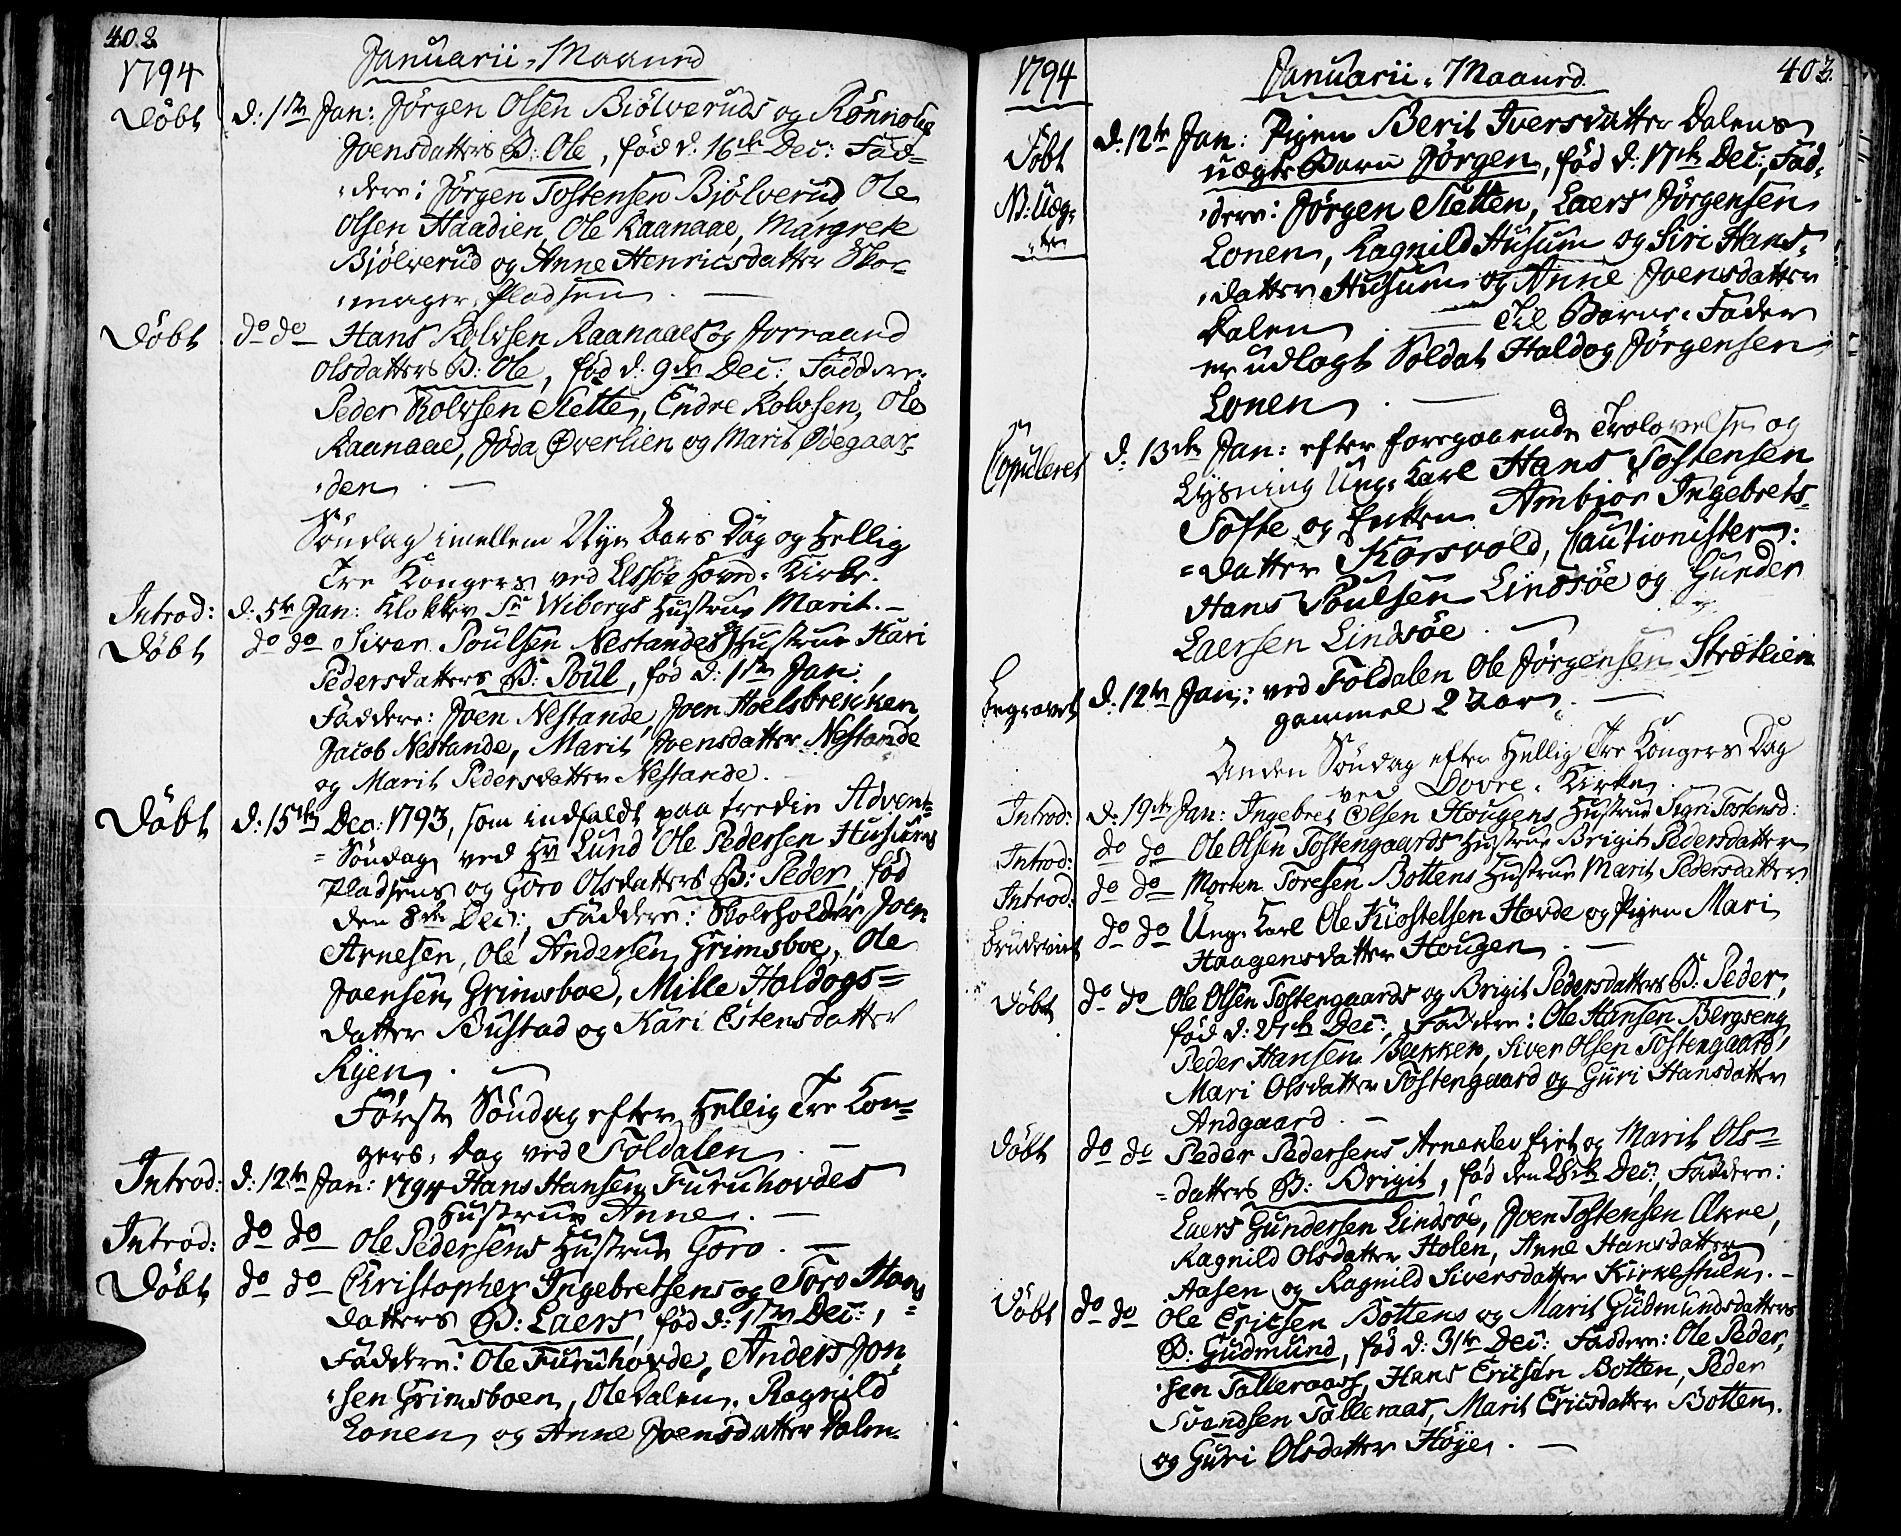 402
1794
Januarii-Maaned
Döbt d: 1ste Jan: Jörgen Olsen Biölveruds og Rönnoug
Joensdatters B: Ole, föd d: 16de Dec: Fad-
dere: Jörgen Tostensen Bjölverud, Ole
Olsen Haadien, Ole Raanaae, Margrete
Bjölverud og Anne Henricsdatter Sko-
mager-Pladsen.
Döbt do do Hans Rolvsen Raanaaes og Jorraand
Olsdatters B: Ole, föd d: 9de Dec: Faddere:
Peder Rolvsen Slette, Endre Rolvsen, Ole
Raanaae, Jöda Øverlien og Marit Ødegaar-
den.
Söndag imellem Nyt Aars Dag og Hellig
Tre Kongers ved Lessöe Hoved-Kirke.
Introd: d: 5te Jan: Klokker Sr Wiborgs Hustrue Marit.
Döbt do do Siver Poulsen Nestandes og Hustrue Kari
Pedersdatters B: Poul, föd d: 1ste Jan:,
Faddere: Joen Nestande, Joen Hoelsbrekken,
Jacob Nestande, Marit Joensdatter Nestande
og Marit Pedersdatter Nestande.
Döbt d: 15de Dec: 1793, som indfaldt paa tredie Advent-
Söndag ved Hr Lund Ole Pedersen Husums
Pladsens og Goro Olsdatters B: Peder, föd
den 8de Dec:, Faddere: Skoleholder Joen
Arnesen, Ole Andersen Grimsboe, Ole
Joensen Grimsboe, Mille Haldogs-
datter Bustad og Kari Estensdatter
Ryen.
Förste Söndag efter Hellig Tre Kon-
gers-Dag ved Foldalen
Introd: d: 12te Jan: 1794 Hans Hansen Furuhovdes
Hustrue Anne.
Introd: do do Ole Pedersens Hustrue Goro.
Döbt do do Christopher Ingebretsens og Toro Hans
datters B: Laers, föd d: 1ste Dec:,
Faddere: Ole Furuhovde, Anders Jon-
sen Grimsboen, Ole Dalen, Ragnild
Lonen og Anne Joensdatter Dalen.
1794
Januarii-Maaned.
402
Döbt d: 12te Jan: Pigen Berit Iversdatter Dalens
NB: Uæg-
te
uægte Barn Jörgen, föd d: 17de Dec:, Fad-
dere: Jörgen Sletten, Laers Jörgensen
Lonen, Ragnild Husum og Siri Hans-
datter Husum og Anne Joensdatter
Dalen. Til Barne-Fader
er udlagt Soldat Haldog Jörgensen
Lonen.
Copuleret d: 13de Jan: efter foregaaende Trolovelse og
Lysning Ung-Karl Hans Tostensen
Tofte og Enken Ambjör Ingebrets-
datter Korsvold, Cautionister:
Hans Poulsen Lindsöe og Gunder
Laersen Lindsöe.
Begravet d: 12te Jan: ved Foldalen Ole Jörgensen Strætlien
gammel 2 Aar.
Anden Söndag efter Hellig Tre Kongers Dag
ved Dovre-Kirke.
Introd: d: 19de Jan: Ingebret Olsen Hougens Hustrue Sigri Tostensd:
Introd: do do Ole Olsen Tostengaards Hustrue Brigit Pedersdatter
Introd: do do Morten Toresen Bottens Hustrue Marit Pedersdatter
Brudeviet do do Ung-Karl Ole Kiostelsen Hovde og Pigen Mari
Haagensdatter Hougen.
Döbt do do Ole Olsen Tostengaards og Brigit Pedersdatters B: Peder,
föd d: 21de Dec:, Faddere: Ole Hansen Bergseng,
Peder Hansen Bekken, Siver Olsen Tostengaard,
Mari Olsdatter Tostengaard og Guri Hansdatter
Andgaard.
Döbt do do Peder Pedersens Arneklev eiet og Marit Ols-
datters B: Brigit, föd den 28de Dec:, Faddere:
Laers Gundersen Lindsöe, Joen Tostensen Økne,
Ragnild Olsdatter Holen, Anne Hansdatter
Aasen og Ragnild Siversdatter Kirkestuen.
Döbt do do Ole Ericsen Bottens og Marit Gudmundsdatters
B: Gudmund, föd d: 31te Dec: Faddere: Ole Peder-
sen Talleraas, Hans Ericsen Botten, Peder
Svendsen Talleraas, Marit Ericsdatter Botten.
og Guri Olsdatter Höye.